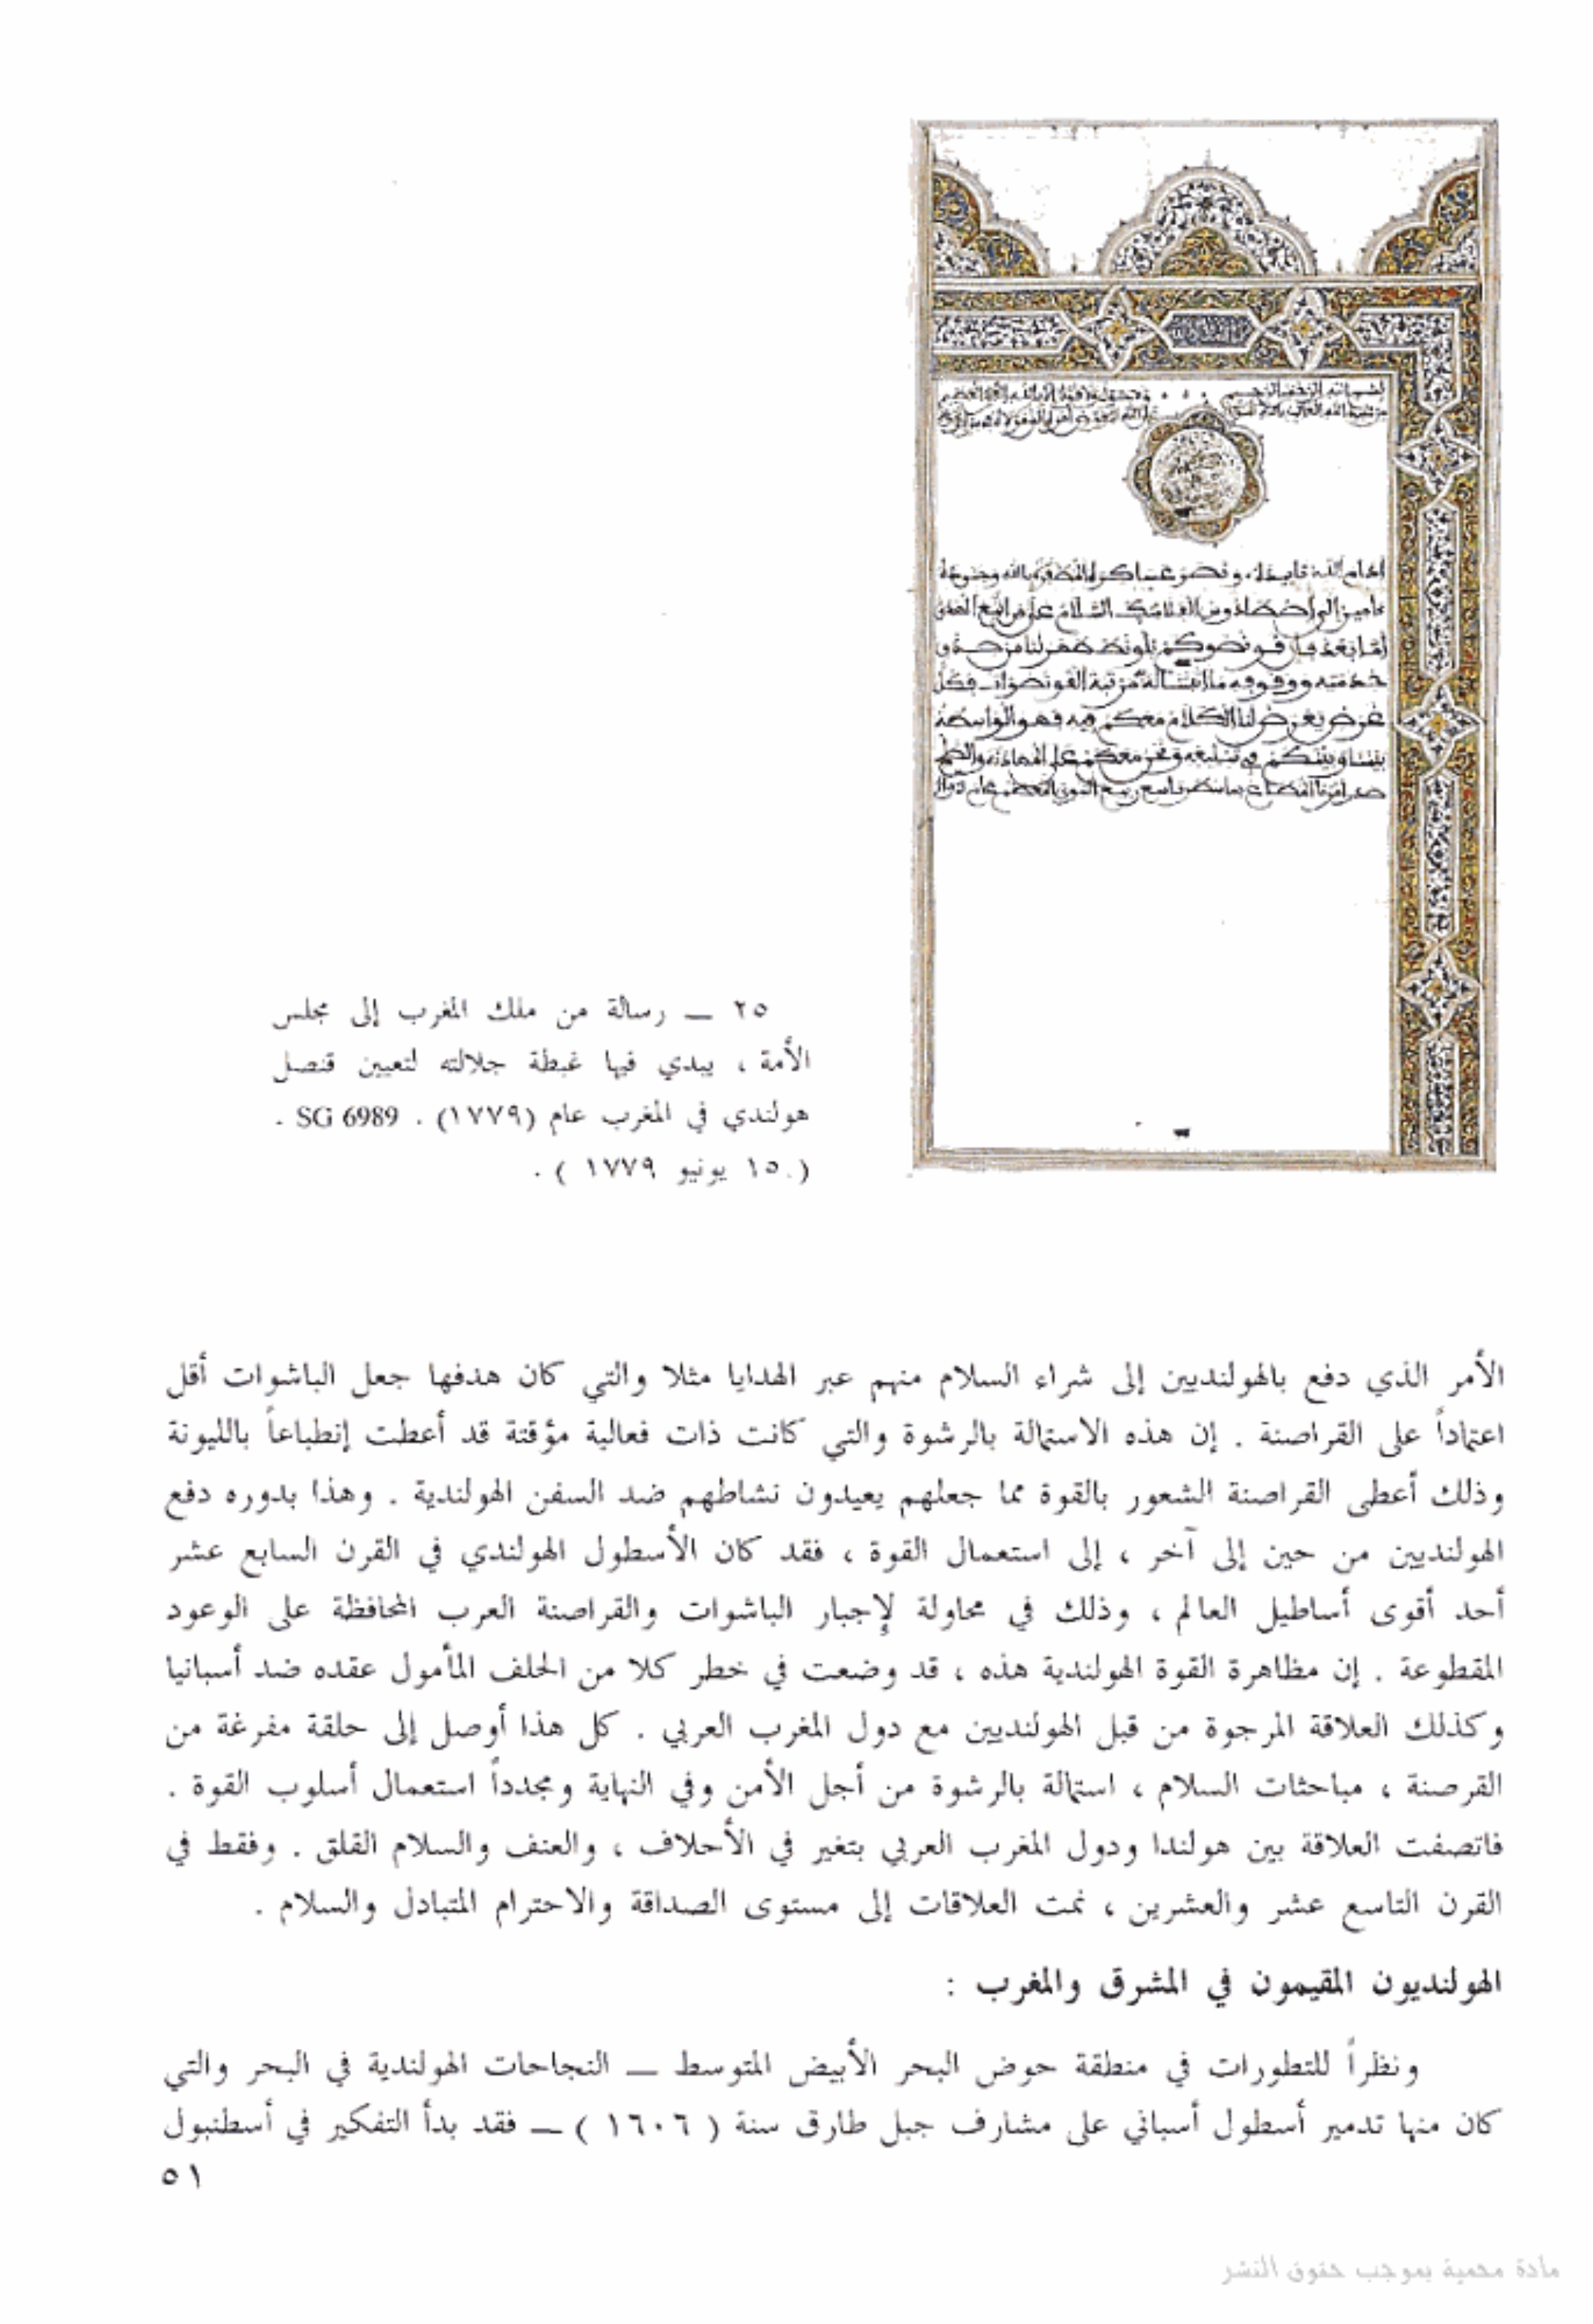 لبسم الله الرحمن الرحيم ولا حول ولا قوة الا بالله العلي العظيم
أما بعد
٢٥ — رسالة من ملك المغرب إلى مجلس
الأمة ، يبدي فيها غبطة جلالته لتعيين قنصل
هولندي في المغرب عام (١٧٧٩) . SG 6989 .
(١٥ يونيو ١٧٧٩ ) .
الأمر الذي دفع بالهولنديين إلى شراء السلام منهم عبر الهدايا مثلا والتي كان هدفها جعل الباشوات أقل
اعتماداً على القراصنة . إن هذه الاستمالة بالرشوة والتي كانت ذات فعالية مؤقتة قد أعطت إنطباعاً بالليونة
وذلك أعطى القراصنة الشعور بالقوة مما جعلهم يعيدون نشاطهم ضد السفن الهولندية . وهذا بدوره دفع
الهولنديين من حين إلى آخر ، إلى استعمال القوة ، فقد كان الأسطول الهولندي في القرن السابع عشر
أحد أقوى أساطيل العالم ، وذلك في محاولة لإجبار الباشوات والقراصنة العرب المحافظة على الوعود
المقطوعة . إن مظاهرة القوة الهولندية هذه ، قد وضعت في خطر كلا من الحلف المأمول عقده ضد أسبانيا
وكذلك العلاقة المرجوة من قبل الهولنديين مع دول المغرب العربي . كل هذا أوصل إلى حلقة مفرغة من
القرصنة ، مباحثات السلام ، استمالة بالرشوة من أجل الأمن وفي النهاية ومجدداً استعمال أسلوب القوة .
فاتصفت العلاقة بين هولندا ودول المغرب العربي بتغير في الأحلاف ، والعنف والسلام القلق . وفقط في
القرن التاسع عشر والعشرين ، نمت العلاقات إلى مستوى الصداقة والاحترام المتبادل والسلام .
الهولنديون المقيمون في المشرق والمغرب :
ونظراً للتطورات في منطقة حوض البحر الأبيض المتوسط — النجاحات الهولندية في البحر والتي
كان منها تدمير أسطول أسباني على مشارف جبل طارق سنة ( ١٦٠٦ ) — فقد بدأ التفكير في أسطنبول
٥١
مادة محمية بموجب حقوق النشر